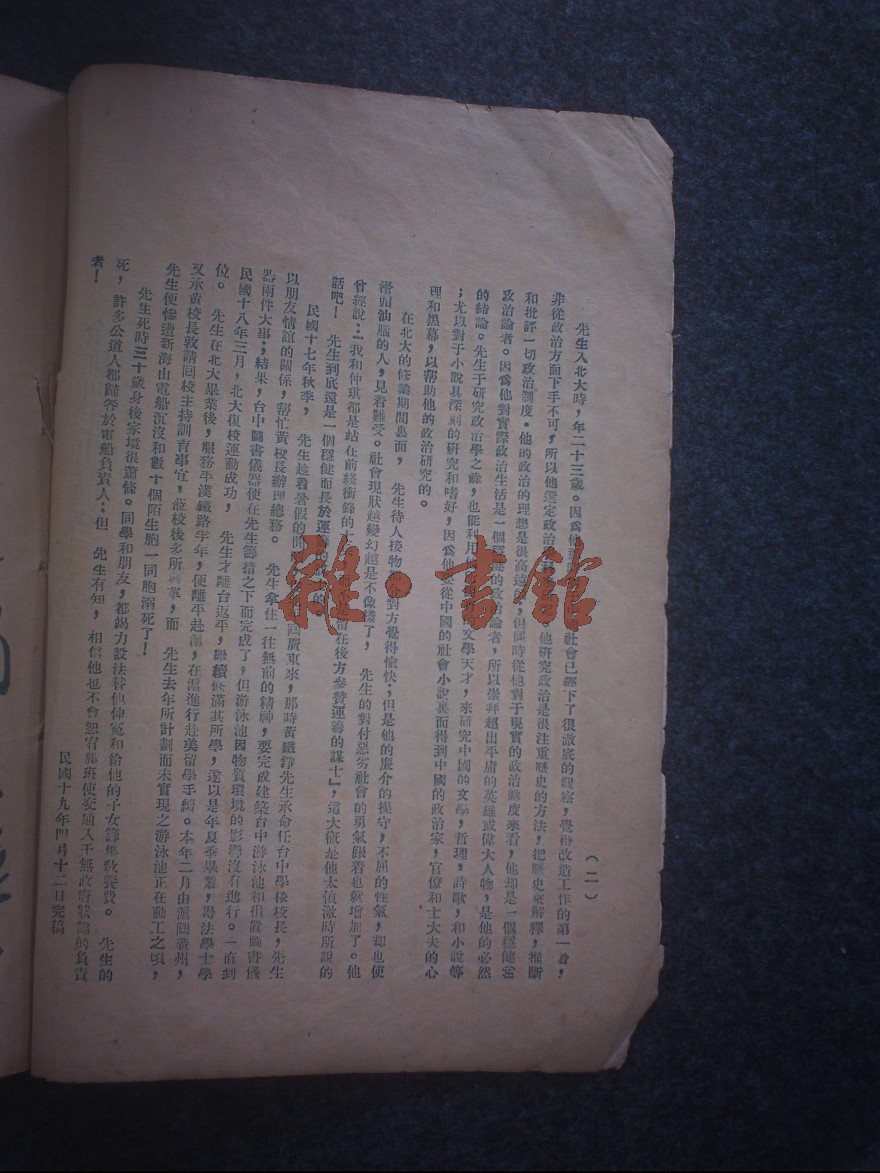 （二）
先生入北大時，年二十三歲。因爲他 社會已經下了很澈底的觀察，覺得改造工作的第一着，
非從政治方面下手不可，所以他選定政治 他研究政治是很注重歷史的方法，把歷史來解釋，推斷
和批評一切政治制度。他的政治的理想是很高遠的，但同時從他對于現實的政治態度來看，他却是一個穩健的
政治論者。因爲他對實際政治生活是一個穩健的政治論者，所以崇拜超出平庸的英雄或偉大人物，是他的必然
的結論。先生于研究政治學之餘，也能利用 文學天才，來研究中國的文學，哲理，詩歌，和小說等
；尤以對于小說具深刻的研究和嗜好，因爲他要從中國的社會小說裏面得到中國的政治家，官僚和士大夫的心
理和黑幕，以幫助他的政治研究的。
在北大的修養期間裏面， 先生待人接物 對方覺得愉快；但是他的廉介的操守，不屈的性氣，却也使
滑頭油腦的人，見着難受。社會現狀越變幻越是不像樣了， 先生的對付惡劣社會的勇氣跟着也就增加了。他
曾經說：『我和仲琪都是站在前綫衝鋒的士 留在後方參贊運籌的謀士』，這大概是他太憤激時所說的
話吧！ 先生到底還是一個穩健而長於運籌 的。
民國十七年秋季， 先生趁着暑假的 回廣東來，那時黃鐵錚先生承命任台中學校校長，先生
以朋友情誼的關係，幫忙黃校長辦理總務。 先生拿住一往無前的精神，要完成建築台中游泳池和捐置圖書儀
器兩件大事；結果，台中圖書儀器便在先生籌措之下而完成了，但游泳池因物質環境的影響沒有進行。一直到
民國十八年三月，北大復校運動成功， 先生才離台返平，繼續修滿其所學，遂以是年夏季畢業，得法學士學
位。 先生在北大畢業後，服務平漢鐵路半年，便離平赴滬，在滬進行赴美留學手續。本年二月由滬回廣州，
又承黃校長敦請回校主持訓育事宜，蒞校後多所 革，而 先生去年所計劃而未實現之游泳池正在動工之頃，
先生便慘遭新海山電船沉沒和數十個陌生胞一同胞溺死了！
先生死時三十歲身後家境很蕭條。同學和朋友，都竭力設法替他伸冤和給他的子女籌集教養費。 先生的
死，許多公道人都歸咎於電船負責人；但 先生有知，相信他也不會恕宥那班使交通入于無政府狀態的負責
者！
民國十九年四月十二日完稿
雜·書館